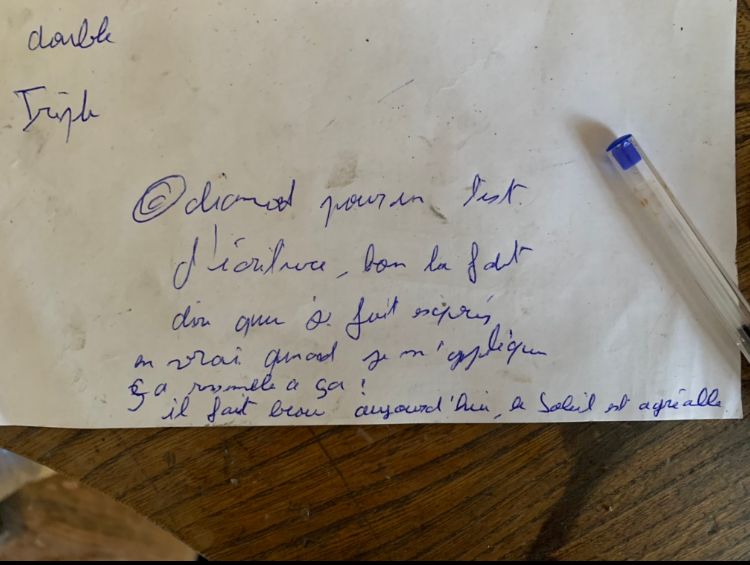 double
Triple
@diamod pour un test
d'écriture, bon la faut
dire que je fait exprès
en vrai quand je m'applique
ça ressemble a ça !
il fait beau aujourd'hui, le Soleil est agréable